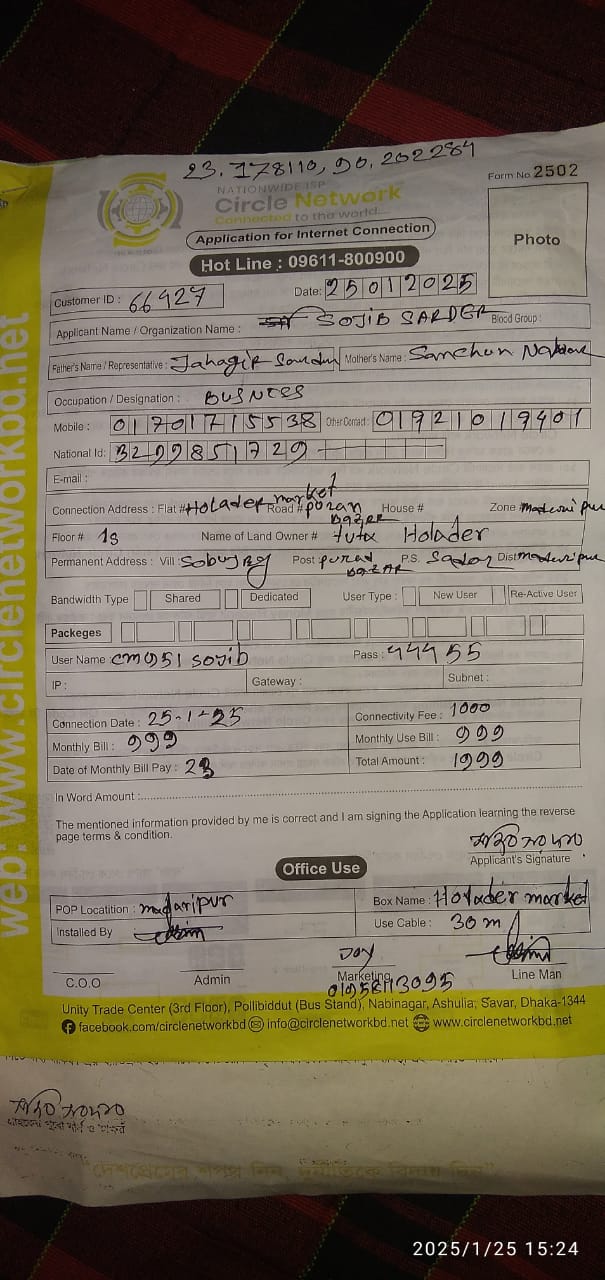 23.178110, 90.202284
Form No. 2502
NATIONWIDE ISP
Circle Network
Connected to the world...
Application for Internet Connection
Hot Line : 09611-800900
Photo
Customer ID : 66427
Date: 25012025
Applicant Name / Organization Name : SOJIB SARDER Blood Group :
Father's Name / Representative : Jahagir Mother's Name :
Occupation / Designation : BUSNTES
Mobile : 01701715538 Other Contact : 01921019401
National Id: 3299851729
E-mail :
Connection Address : Flat # Holader market Road # poran Bazer House # Zone
Floor # 1s Name of Land Owner # tuta Holader
Permanent Address : Vill: Post puran BAZAR P.S. Sador Dist
Bandwidth Type Shared Dedicated User Type : New User Re-Active User
Packeges
User Name : cm951 sojib Pass : 44455
IP : Gateway : Subnet :
Connection Date : 25-1-25 Connectivity Fee : 1000
Monthly Bill : 999 Monthly Use Bill : 999
Date of Monthly Bill Pay : 23 Total Amount : 1999
In Word Amount :
The mentioned information provided by me is correct and I am signing the Application learning the reverse
page terms & condition.
Applicant's Signature
Office Use
POP Locatition : madaripur Box Name : Holader market
Installed By Use Cable : 30 m
Joy
C.O.O Admin Marketing Line Man
01958113095
Unity Trade Center (3rd Floor), Pollibiddut (Bus Stand), Nabinagar, Ashulia, Savar, Dhaka-1344
facebook.com/circlenetworkbd info@circlenetworkbd.net www.circlenetworkbd.net
web: www.circlenetworkbd.net
"দেশপ্রেমের শপথ নিন, দুর্নীতিকে বিদায় দিন"
2025/1/25 15:24